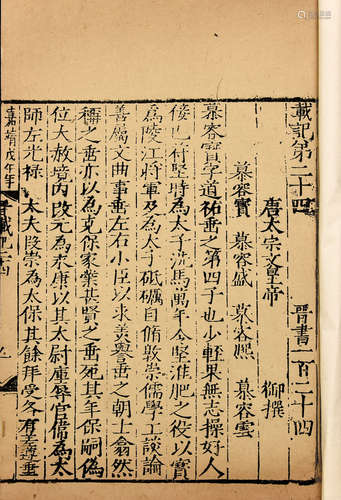 載記第二十四 晉書一百二十四
唐太宗文皇帝 御撰
慕容寶 慕容盛 慕容熙 慕容雲
慕容寶字道祐垂之第四子也少輕果無志操好人
佞己苻堅時為太子洗馬萬年令堅淮肥之役以寶
為陵江將軍及為太子砥礪自脩敦崇儒學工談論
善屬文曲事垂左右小臣以求美譽垂之朝士翕然
稱之垂亦以為克保家業甚賢之垂死其年保嗣偽
位大赦境內改元為永康以其太尉庫辱官備為太
師左光祿大夫段崇為太保其餘拜受各有差遵垂
嘉靖戊午年